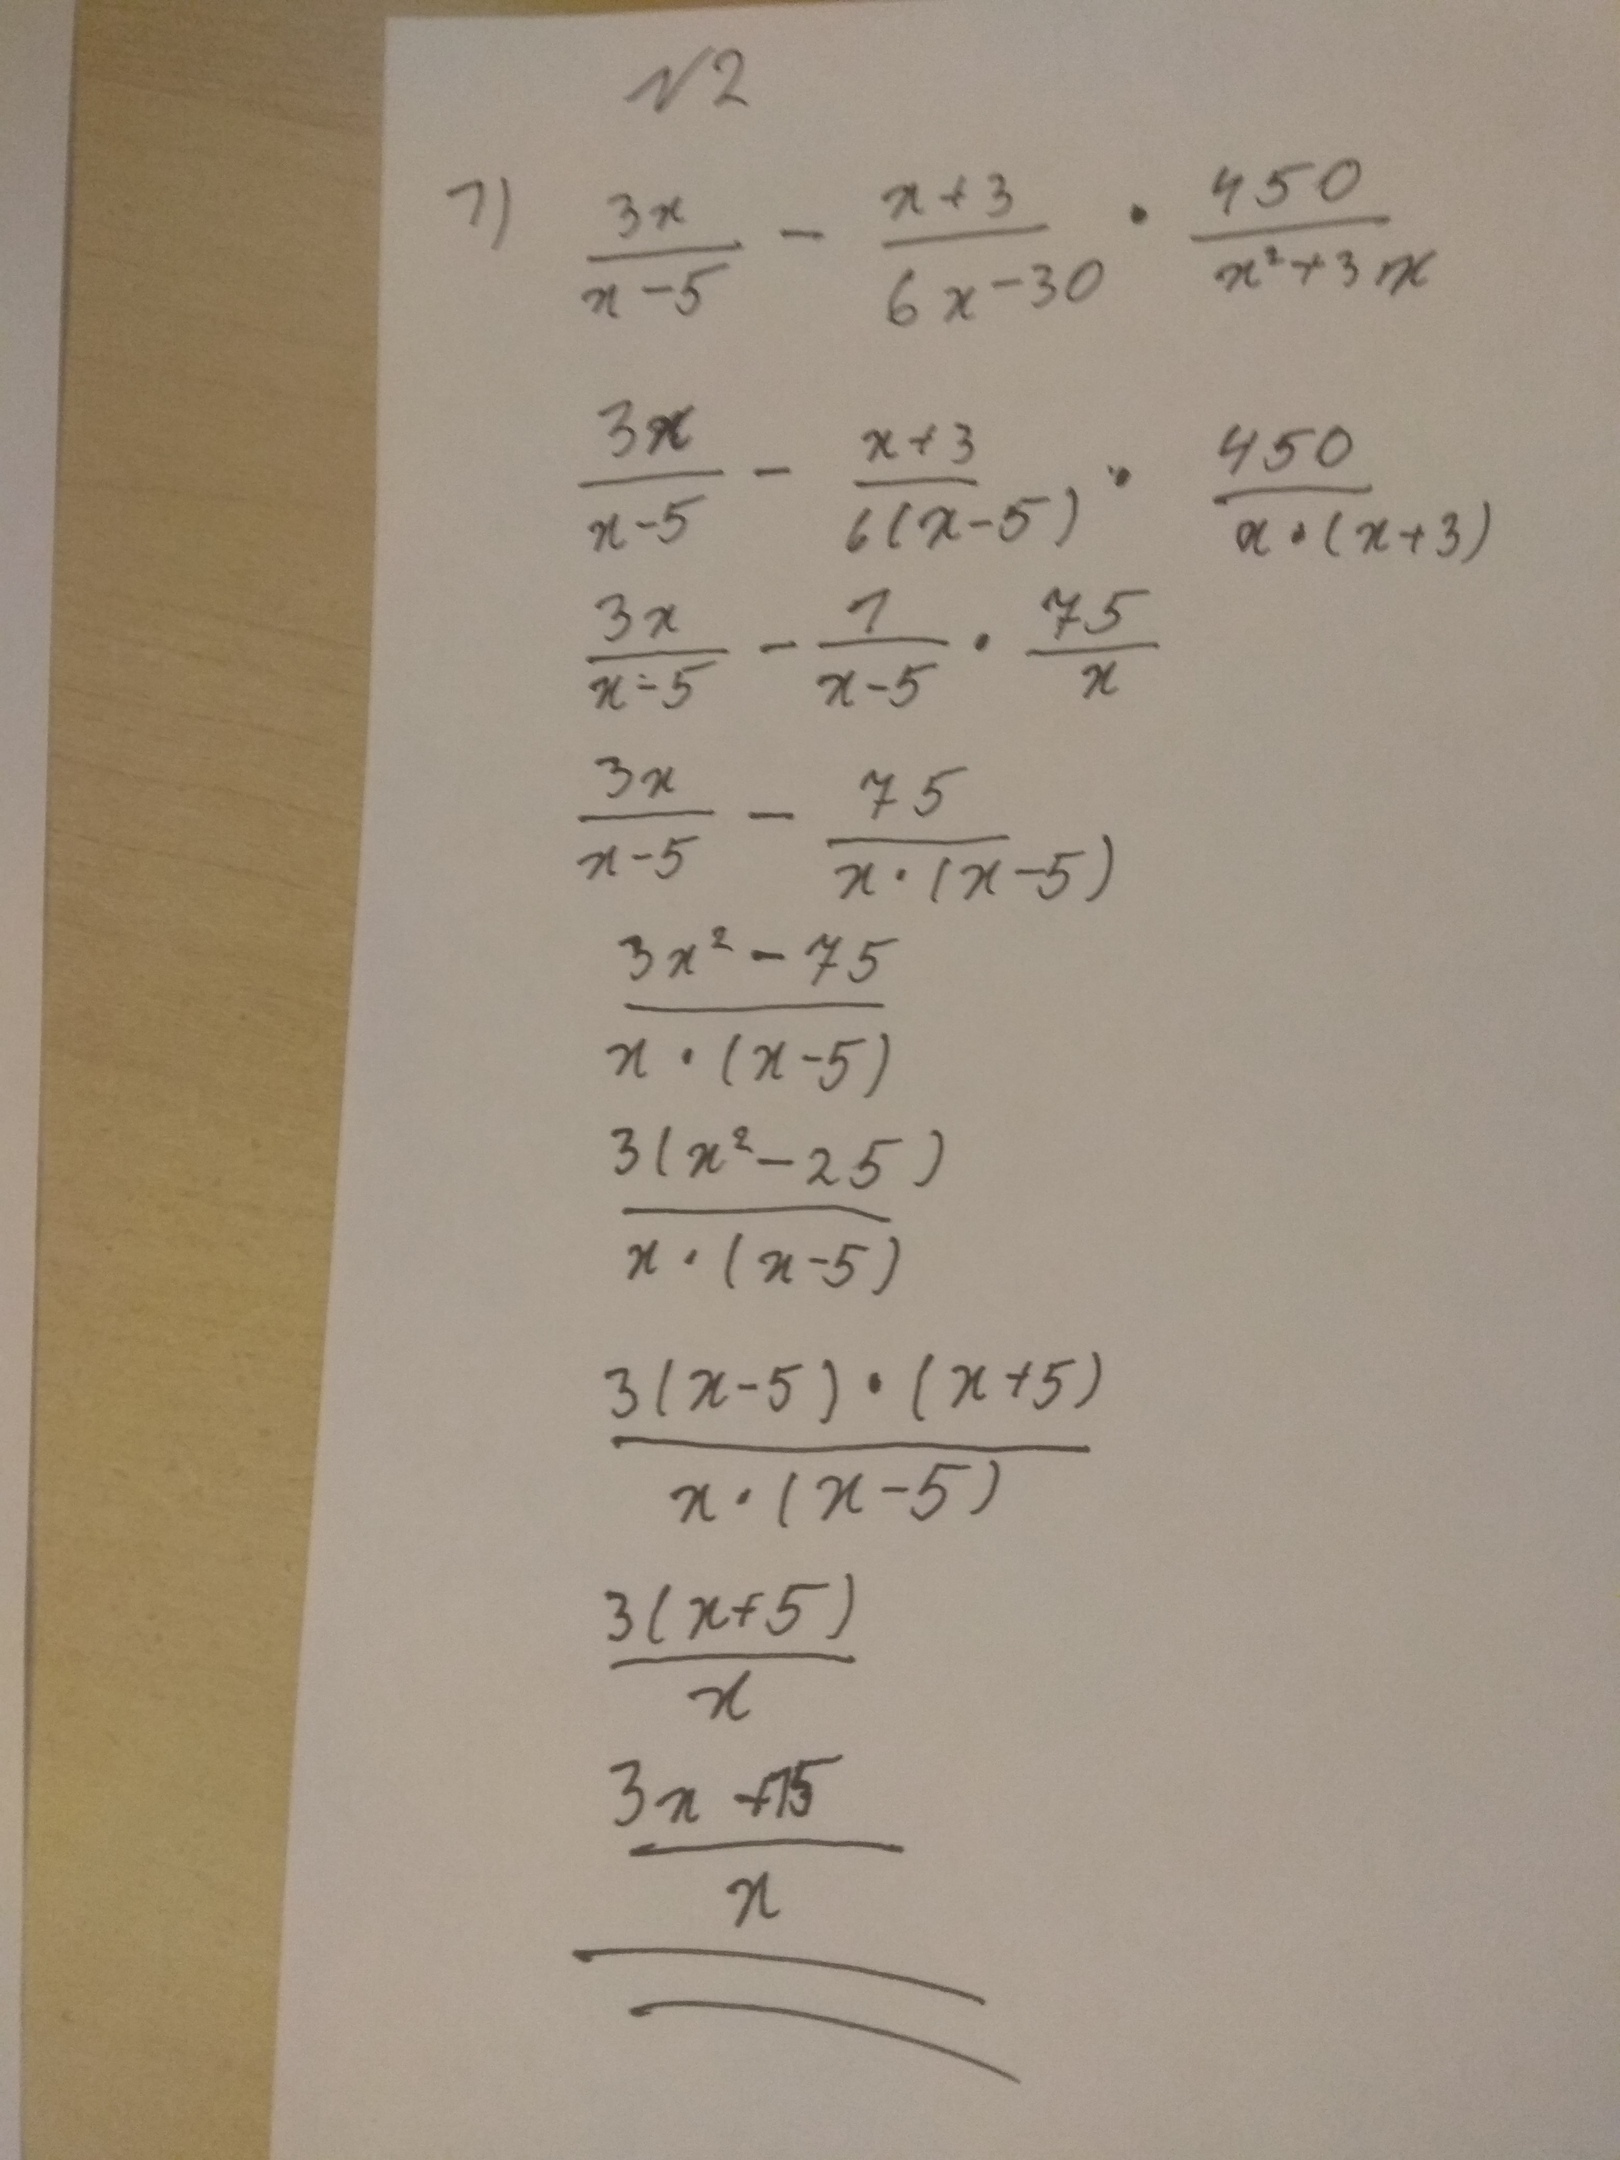 №2
1) 3x/(x-5) - (x+3)/(6x-30) · 450/(x²+3x)
3x/(x-5) - (x+3)/(6(x-5)) · 450/(x·(x+3))
3x/(x-5) - 1/(x-5) · 75/x
3x/(x-5) - 75/(x·(x-5))
(3x²-75)/(x·(x-5))
3(x²-25)/(x·(x-5))
3(x-5)·(x+5)/(x·(x-5))
3(x+5)/x
(3x+15)/x